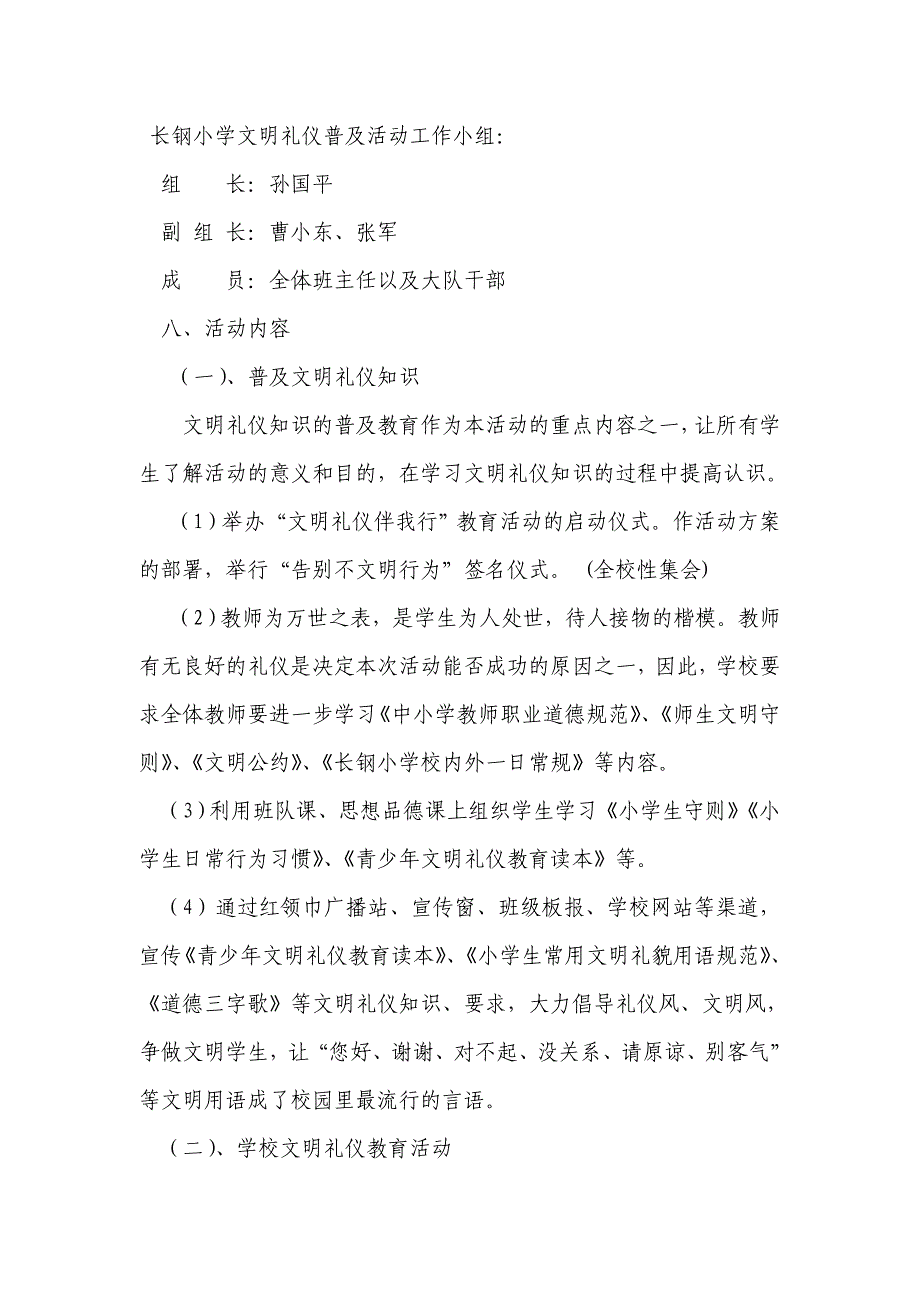 长钢小学文明礼仪普及活动工作小组：
组　　长：孙国平
副 组 长：曹小东、张军
成　　员：全体班主任以及大队干部
八、活动内容
（一）、普及文明礼仪知识
文明礼仪知识的普及教育作为本活动的重点内容之一，让所有学
生了解活动的意义和目的，在学习文明礼仪知识的过程中提高认识。
（1）举办“文明礼仪伴我行”教育活动的启动仪式。作活动方案
的部署，举行“告别不文明行为”签名仪式。 (全校性集会)
（2）教师为万世之表，是学生为人处世，待人接物的楷模。教师
有无良好的礼仪是决定本次活动能否成功的原因之一，因此，学校要
求全体教师要进一步学习《中小学教师职业道德规范》、《师生文明守
则》、《文明公约》、《长钢小学校内外一日常规》等内容。
（3）利用班队课、思想品德课上组织学生学习《小学生守则》《小
学生日常行为习惯》、《青少年文明礼仪教育读本》等。
（4）通过红领巾广播站、宣传窗、班级板报、学校网站等渠道，
宣传《青少年文明礼仪教育读本》、《小学生常用文明礼貌用语规范》、
《道德三字歌》等文明礼仪知识、要求，大力倡导礼仪风、文明风，
争做文明学生，让“您好、谢谢、对不起、没关系、请原谅、别客气”
等文明用语成了校园里最流行的言语。
（二）、学校文明礼仪教育活动